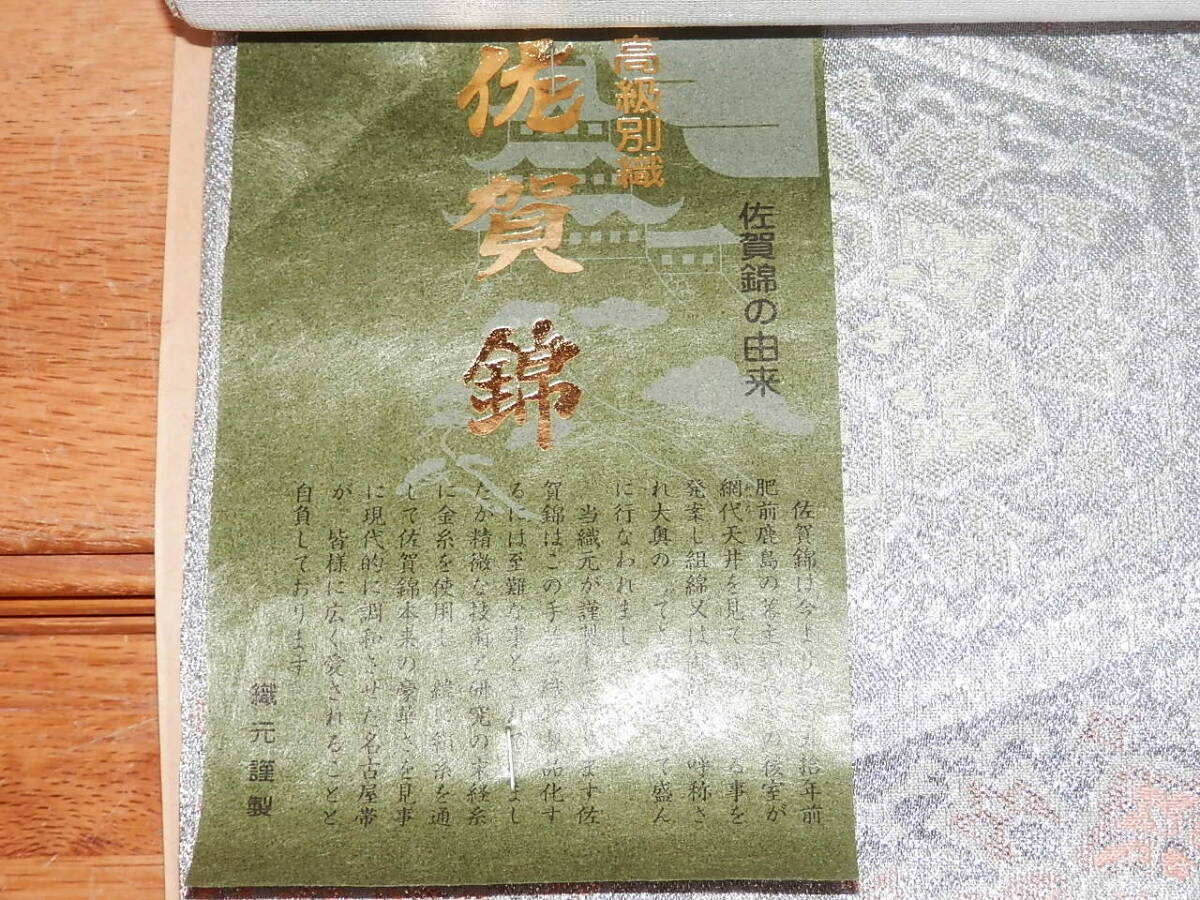 高級別織
佐賀錦
佐賀錦の由来
佐賀錦は今より 拾年前
肥前鹿島の 後室が
網代天井を見て る事を
発案し組綿又は 呼称さ
れ大奥の て して盛ん
に行なわれまし
当織元が謹製 ます佐
賀錦はこの手 織 品化す
るには至難な事と まし
たが精微な技術と研究の末経糸
に金糸を使用 緯に絹糸を通
して佐賀錦本来の豪華さを見事
に現代的に調和させた名古屋帯
が 皆様に広く愛されることと
自負しております
織元謹製